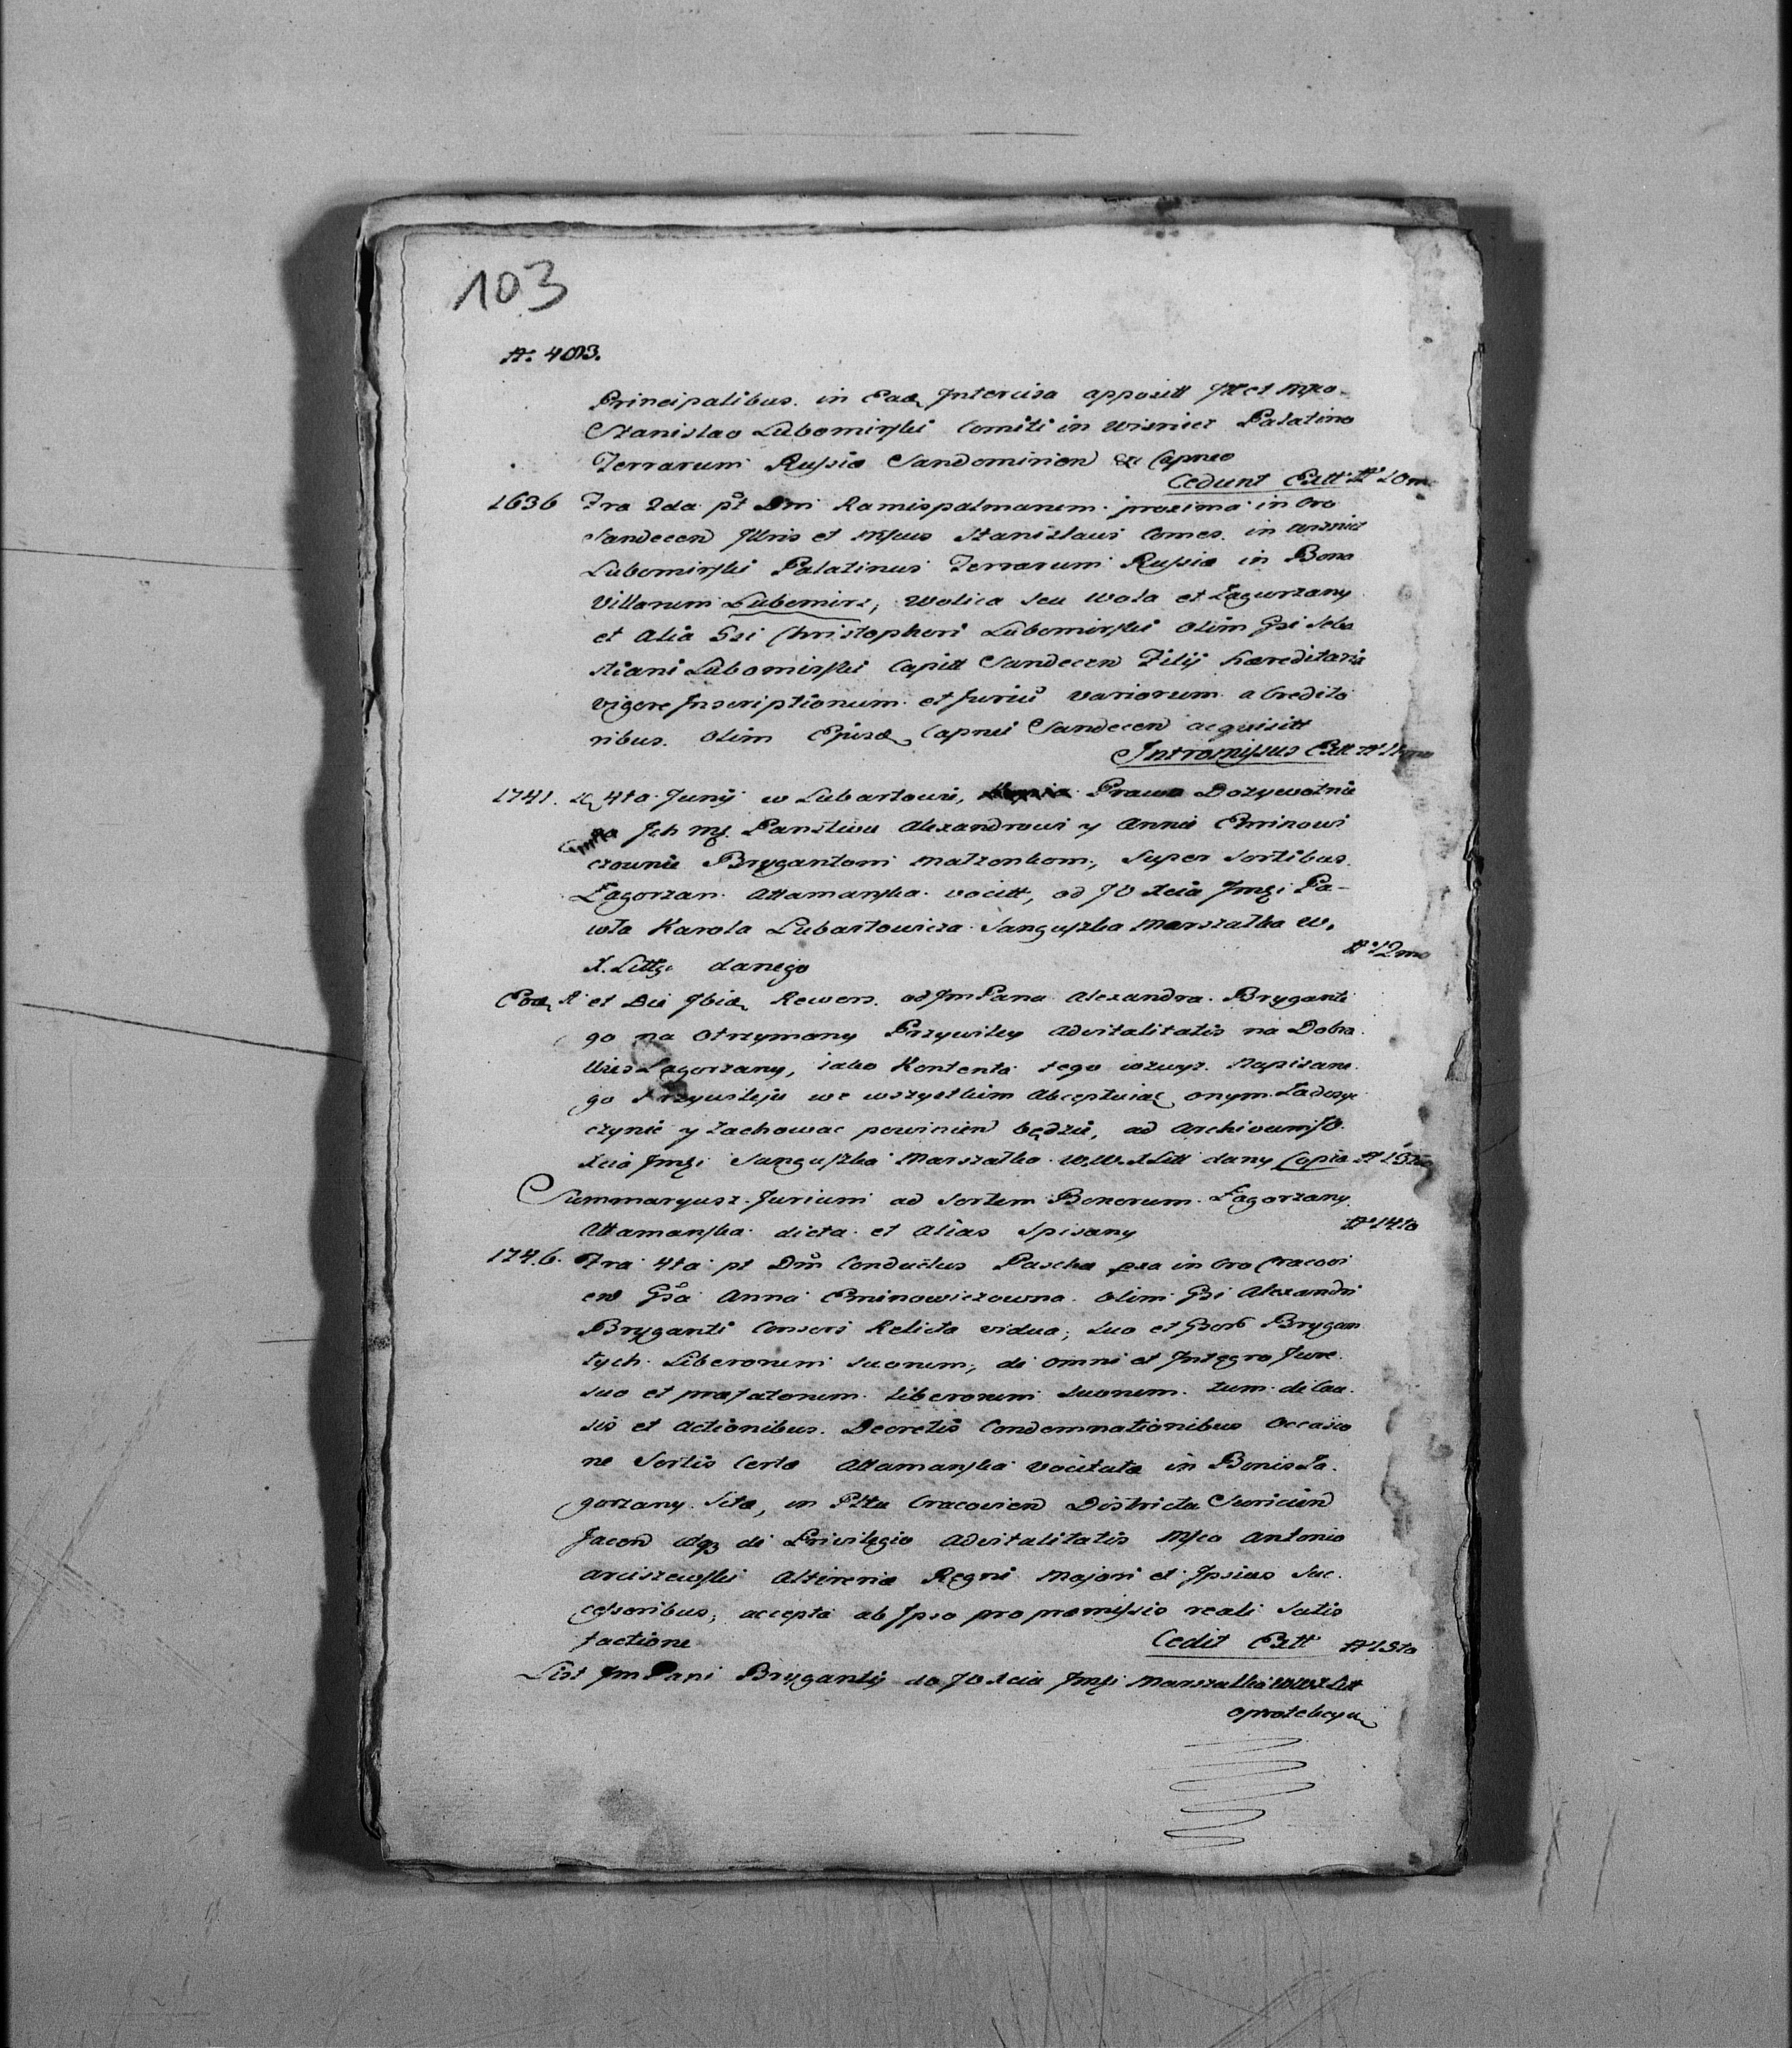 103
N. 403.
Principalibus. in Ead Intercisa apposit Illet Mgco
Stanislao Lubomirski Comiti in Wisnicz Palatino
Terrarum Russiæ Sandomirien & Capneo
Cedunt Extt N° 10mo
1636 Fra 2da pt Dni Ramispalmarum proxima in Cro
Sandecen Illris et Mfcus Stanislaus Comes in Wisnicz
Lubomirski Palatinus Terrarum Russiæ in Bona
Villarum Lubomirz, Wolica seu Wola et Zagorzany
et Alia Gsi Christophori Lubomirski Olim Gsi Seba
stiani Lubomirski Capitt Sandecen Filij hæreditaria
vigore Inscriptionum et Juriu variorum a Credito
ribus. Olim Ejusd Capnei Sandecen acquisitt
Intromissus Extt N° 11mo
1741. d 4to Junij w Lubartowie, Prawo Dozywotnie
Ich Mę Panstwu Alexandrowi y Annie Eminowi
czownie Brygantom małzonkom, Super Sortibus
Zagorzan. Attamanska vocitt, od JO Xcia Jmęi Pa-
wła Karola Lubartowicza Sanguszka Marszałka W.
X. Littgo danego
N° 12mo
Eod A et Die Ibid Rewers. od Jm Pana Alexandra Brygante
go na Otrzymany Przywiley Advitalitatis na Dobra
Wies Zagorzany, iako Kontenta tego wzwyz. Napisane
go Przywileju we wszystkim Akceptuiąc onym Zadosyc
czynic y zachowac powinien będzie, ad Archivum JO.
Xcia Jmęi Sanguszka Marszałka W. W. X Litt dany Copia N° 13tio
Summaryusz Jurium ad Sortem Bonorum Zagorzany
Attamanska dicta et Alias Spisany
N° 14to
1746. Fra 4ta pt Dm Conductus Pascha pxa in Cro Cracovi
en Gsa Anna Eminowiczowna Olim Gsi Alexandri
Bryganti Consors Relicta vidua, Suo et Gsor Brygan
tych Liberorum suorum, de omni et Integro Jure
suo et præfatorum Liberorum Suorum tum de Cau
sis et Actionibus. Decretis Condemnationibus Occasio
ne Sortis Certæ Attamanska Vocitatæ in Bonis Za
gorzany Sitæ, in Plttu Cracovien Districtu Sciricien
Jacen atq de Privilegio Advitalitatis Mfco Antonio
Arciszewski Altireriæ Regni Majori et Ipsius Suc
cessoribus, accepta ab Ipso pro præmissis reali satis
factione
Cedit Extt N° 15to
List Jm Pani Brygantij do JO Xcia Jmęi Marszałka WWX Litt
oprotekcyą